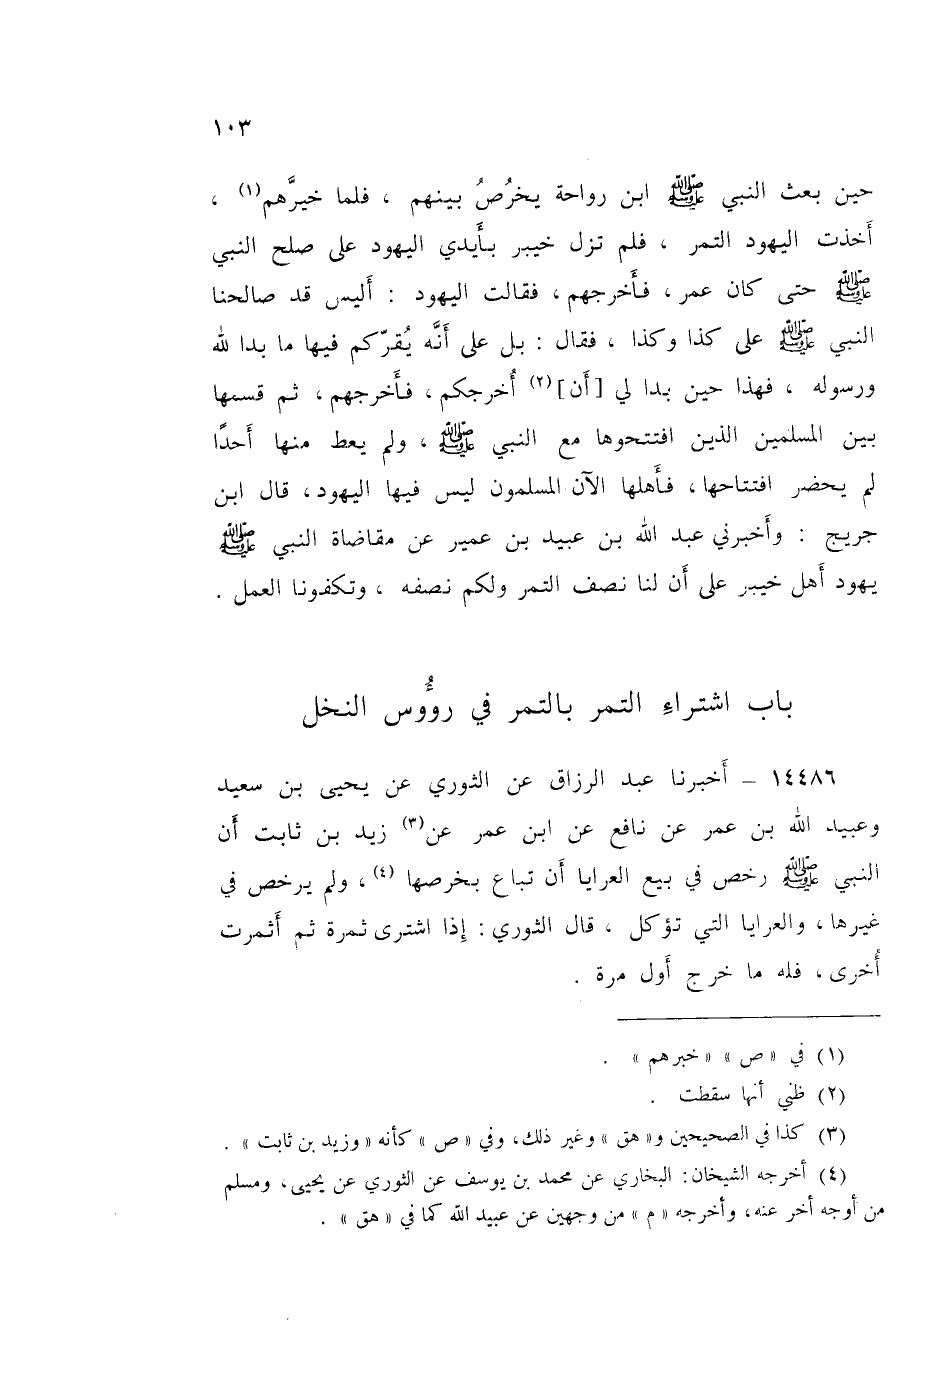 ١٠٣
حين بعث النبي ﷺ ابن رواحة يخرُصُ بينهم ، فلما خيرَّهم(١) ،
أَخذت اليهود التمر ، فلم تزل خيبر بأَيدي اليهود على صلح النبي
ﷺ حتى كان عمر ، فأَخرجهم ، فقالت اليهود : أَليس قد صالحنا
النبي ﷺ على كذا وكذا ، فقال : بل على أَنَّه يُقرّكم فيها ما بدا لله
ورسوله ، فهذا حين بدا لي [أَن](٢) أُخرجكم ، فأَخرجهم ، ثم قسمها
بين المسلمين الذين افتتحوها مع النبي ﷺ ، ولم يعط منها أَحدًا
لم يحضر افتتاحها ، فأَهلها الآن المسلمون ليس فيها اليهود ، قال ابن
جريج : وأَخبرني عبد الله بن عبيد بن عمير عن مقاضاة النبي ﷺ
يهود أَهل خيبر على أَن لنا نصف التمر ولكم نصفه ، وتكفونا العمل .
باب اشتراءِ التمر بالتمر في روُّوس النخل
١٤٤٨٦ – أَخبرنا عبد الرزاق عن الثوري عن يحيى بن سعيد
وعبيد الله بن عمر عن نافع عن ابن عمر عن(٣) زيد بن ثابت أَن
النبي ﷺ رخص في بيع العرايا أَن تباع بخرصها (٤) ، ولم يرخص في
غيرها ، والعرايا التي تؤكل ، قال الثوري : إِذا اشترى ثمرة ثم أَثمرت
أُخرى ، فله ما خرج أَول مرة .
(١) في « ص » « خبرهم » .
(٢) ظني أنها سقطت .
(٣) كذا في الصحيحين و« هق » وغير ذلك، وفي « ص » كأنه « وزيد بن ثابت » .
(٤) أخرجه الشيخان: البخاري عن محمد بن يوسف عن الثوري عن يحيى، ومسلم
من أوجه أخر عنه، وأخرجه « م » من وجهين عن عبيد الله كما في « هق » .